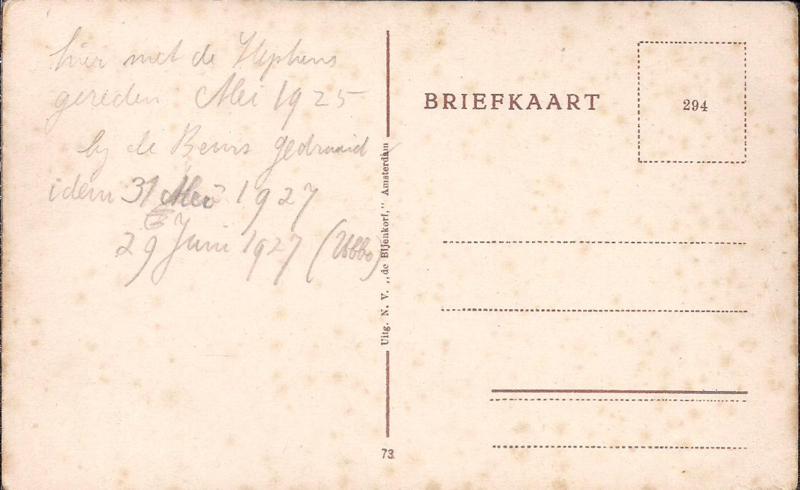 hier met de
gereden Mei 1925
by de Beurs gedraaid
idem 31 Mei 1927
29 Juni 1927 (Ubbo)
BRIEFKAART
294
Uitg. N. V. „de Bijenkorf," Amsterdam
73